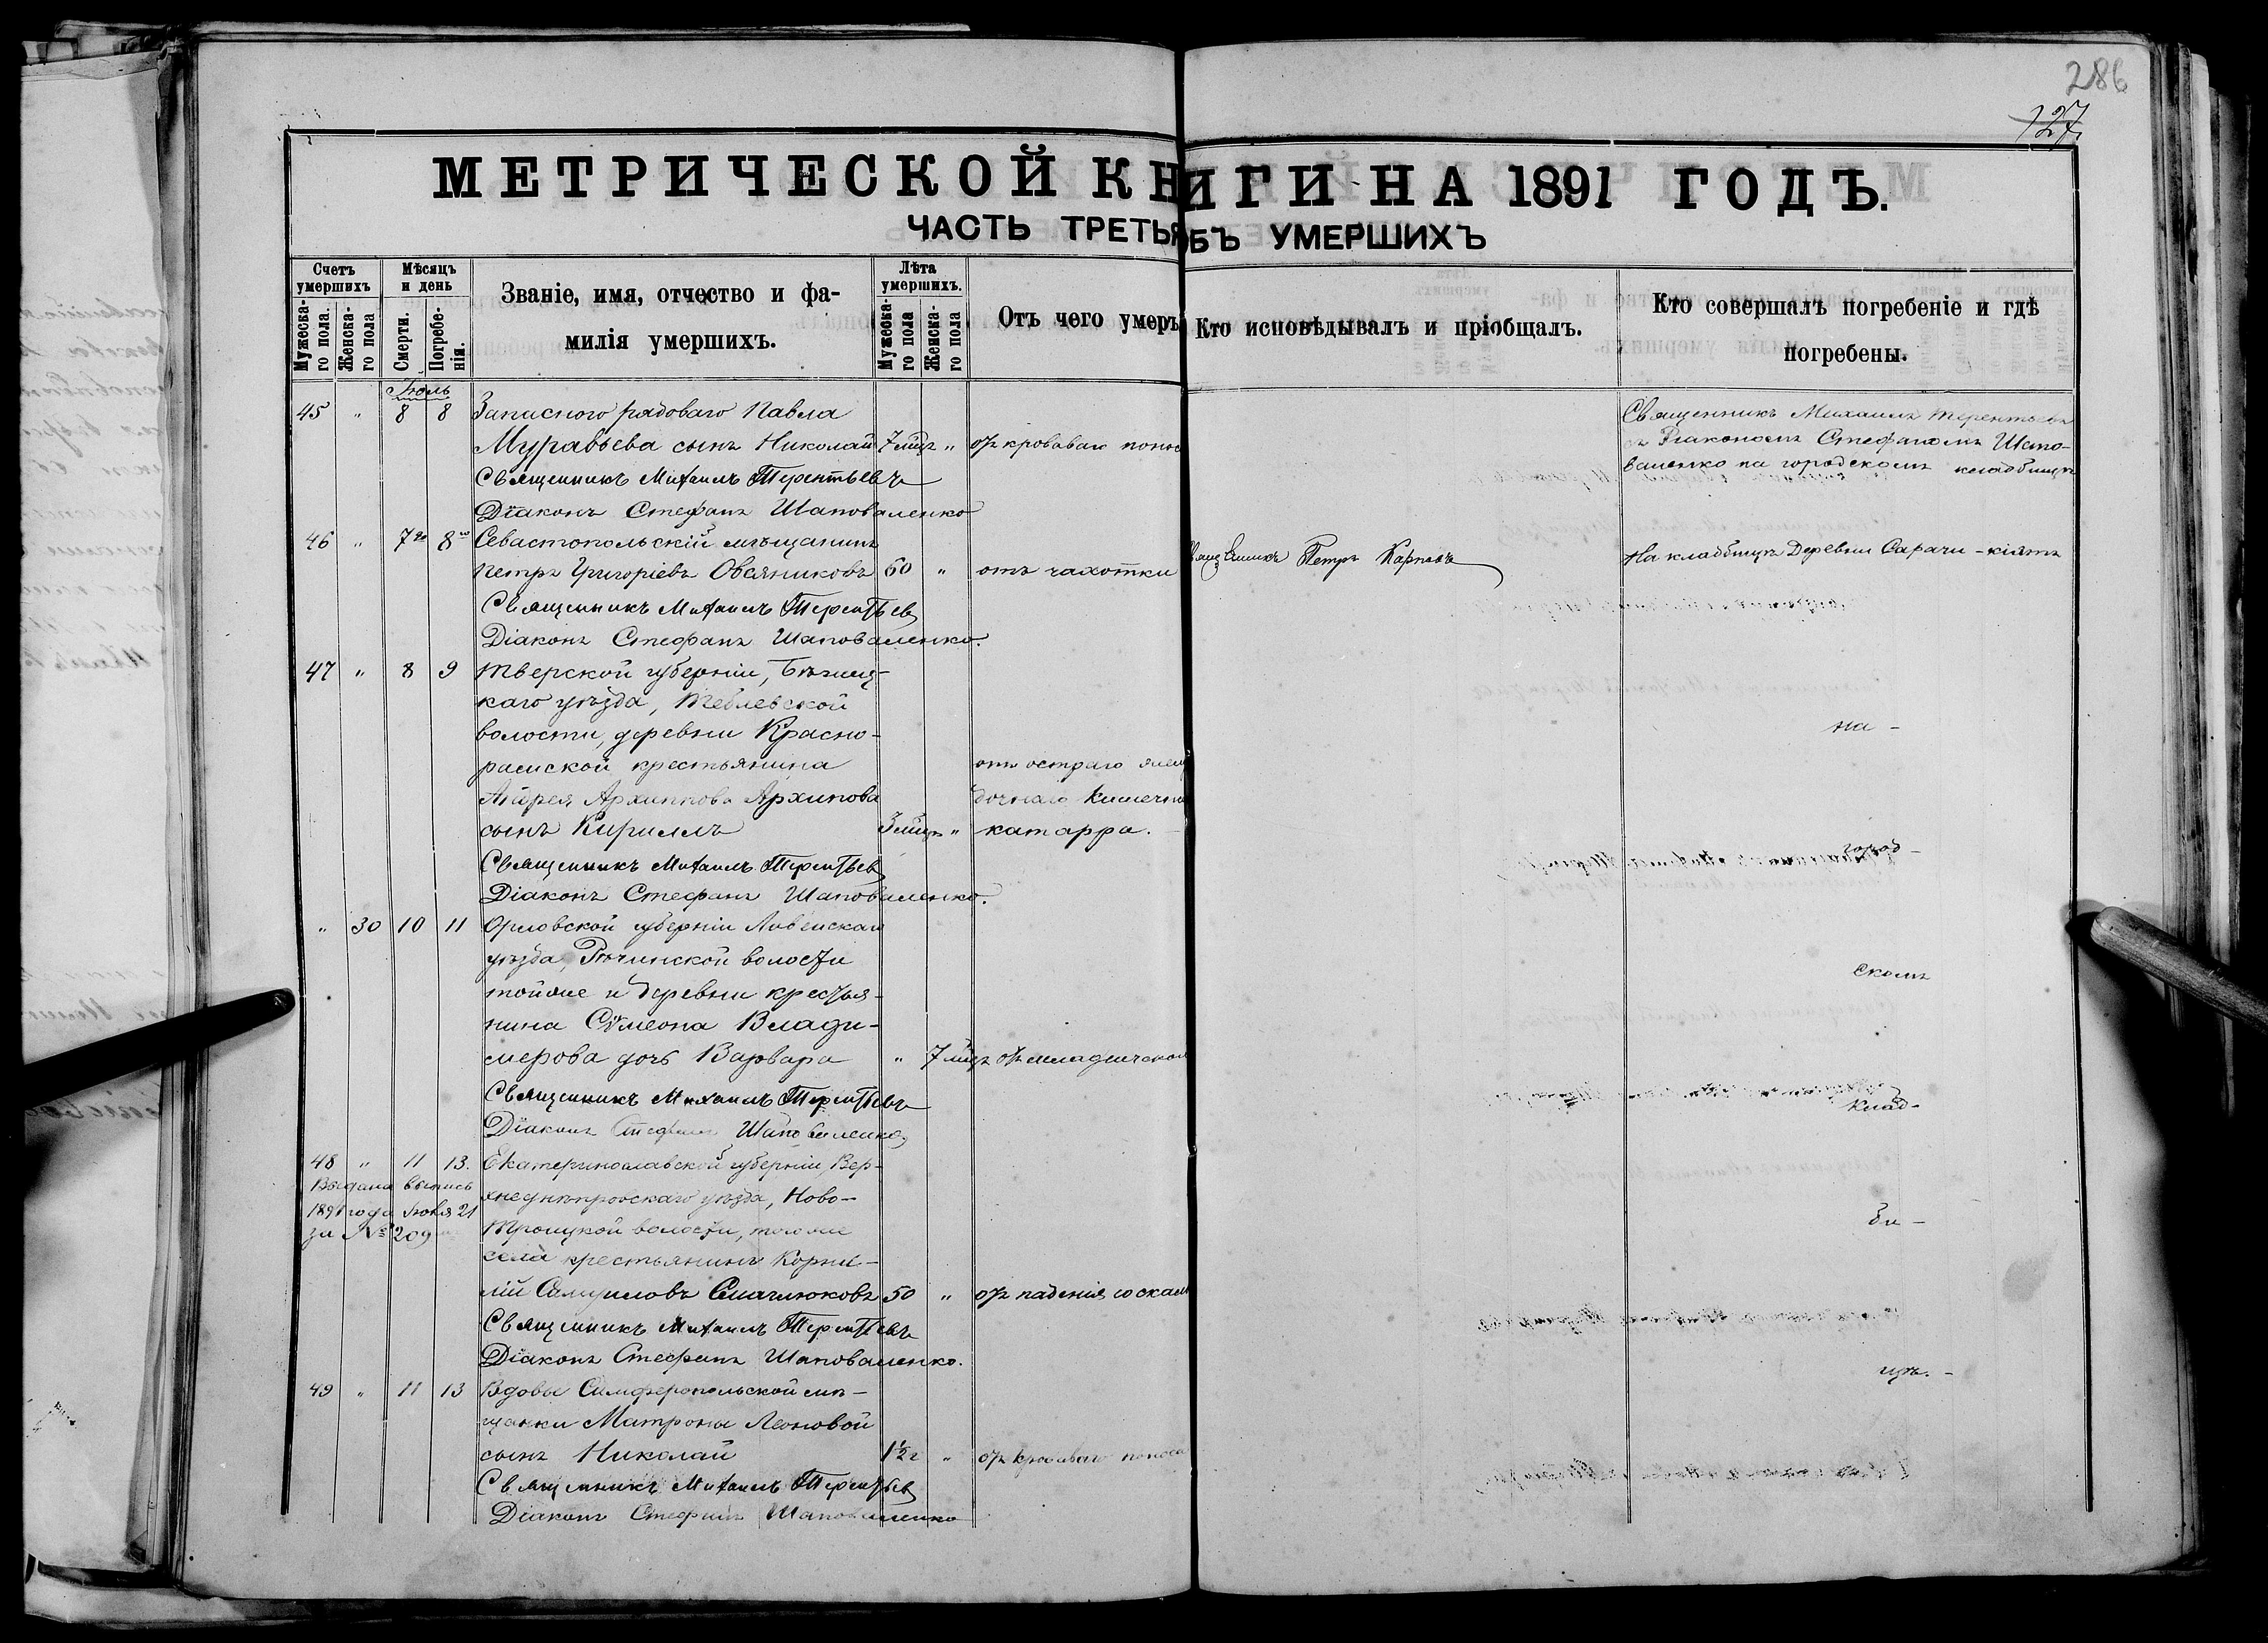 286
127
МЕТРИЧЕСКОЙ КНИГИ НА 1891 ГОДЪ.
ЧАСТЬ ТРЕТЬЯ ОБЪ УМЕРШИХЪ
Счетъ умершихъ
Мужеска-го пола.
Женска-го пола
Мѣсяцъ и день
Смерти.
Погребе-нія.
Званіе, имя, отчество и фа-
милія умершихъ.
Лѣта умершихъ.
Мужеска-го пола
Женска-го пола
Отъ чего умеръ
Кто исповѣдывалъ и пріобщалъ.
Кто совершалъ погребеніе и гдѣ
погребены.
Іюль
45 " 8 8 Запаснаго рядоваго Павла
Муравьева сынъ Николай 7 мцъ " отъ кроваваго понос
Священникъ Михаилъ Терентьевъ
съ Діакономъ Стефаномъ Шапо-
валенко на городскомъ кладбищѣ
Священникъ Михаилъ Терентьевъ
Діаконъ Стефанъ Шаповаленко
46 " 7го 8го Севастопольскій мѣщанинъ
Петръ Григоріевъ Овсяниковъ 60 " отъ чахотки
Священникъ Петръ Карповъ
На кладбищѣ Деревни Сарачи-кіятъ
Священникъ Михаилъ Терентьев
Діаконъ Стефанъ Шаповаленко.
47 " 8 9 Тверской губерніи, Бѣжец-
каго уѣзда, Теблевской
волости, деревни Красно-
рамской крестьянина
Андрея Архиппова Архипова
сынъ Кириллъ 3 мцъ "
отъ остраго желу
дочнаго кишечна
катарра.
Священникъ Михаилъ Терентьев
Діаконъ Стефанъ Шаповаленко.
на -
город -
скомъ
клад-
би -
щѣ. -
" 30 10 11 Орловской губерніи Ливенскаго
уѣзда, Рѣчинской волости
тойже и деревни крестья-
нина Сѵмеона Влади-
мерова дочь Варвара " 7 мцъ отъ младенческой
Священникъ Михаилъ Терентьевъ
Діаконъ Стефанъ Шаповаленко
48 " 11 13. Екатеринославской губерніи, Вер-
хнеднѣпровскаго уѣзда, Ново-
Троицкой волости, того же
села крестьянинъ Корни-
лій Самуиловъ 50 " отъ паденія со скалы
Выдана выпись
1891 года Іюля 21
за № 209
Священникъ Михаилъ Терентьевъ
Діаконъ Стефанъ Шаповаленко.
49 " 11 13 Вдовы Симферопольской мѣ-
щанки Матроны Леоновой
сынъ Николай 1½ г " отъ кроваваго поноса
Священникъ Михаилъ Терентьев
Діаконъ Стефанъ Шаповаленко